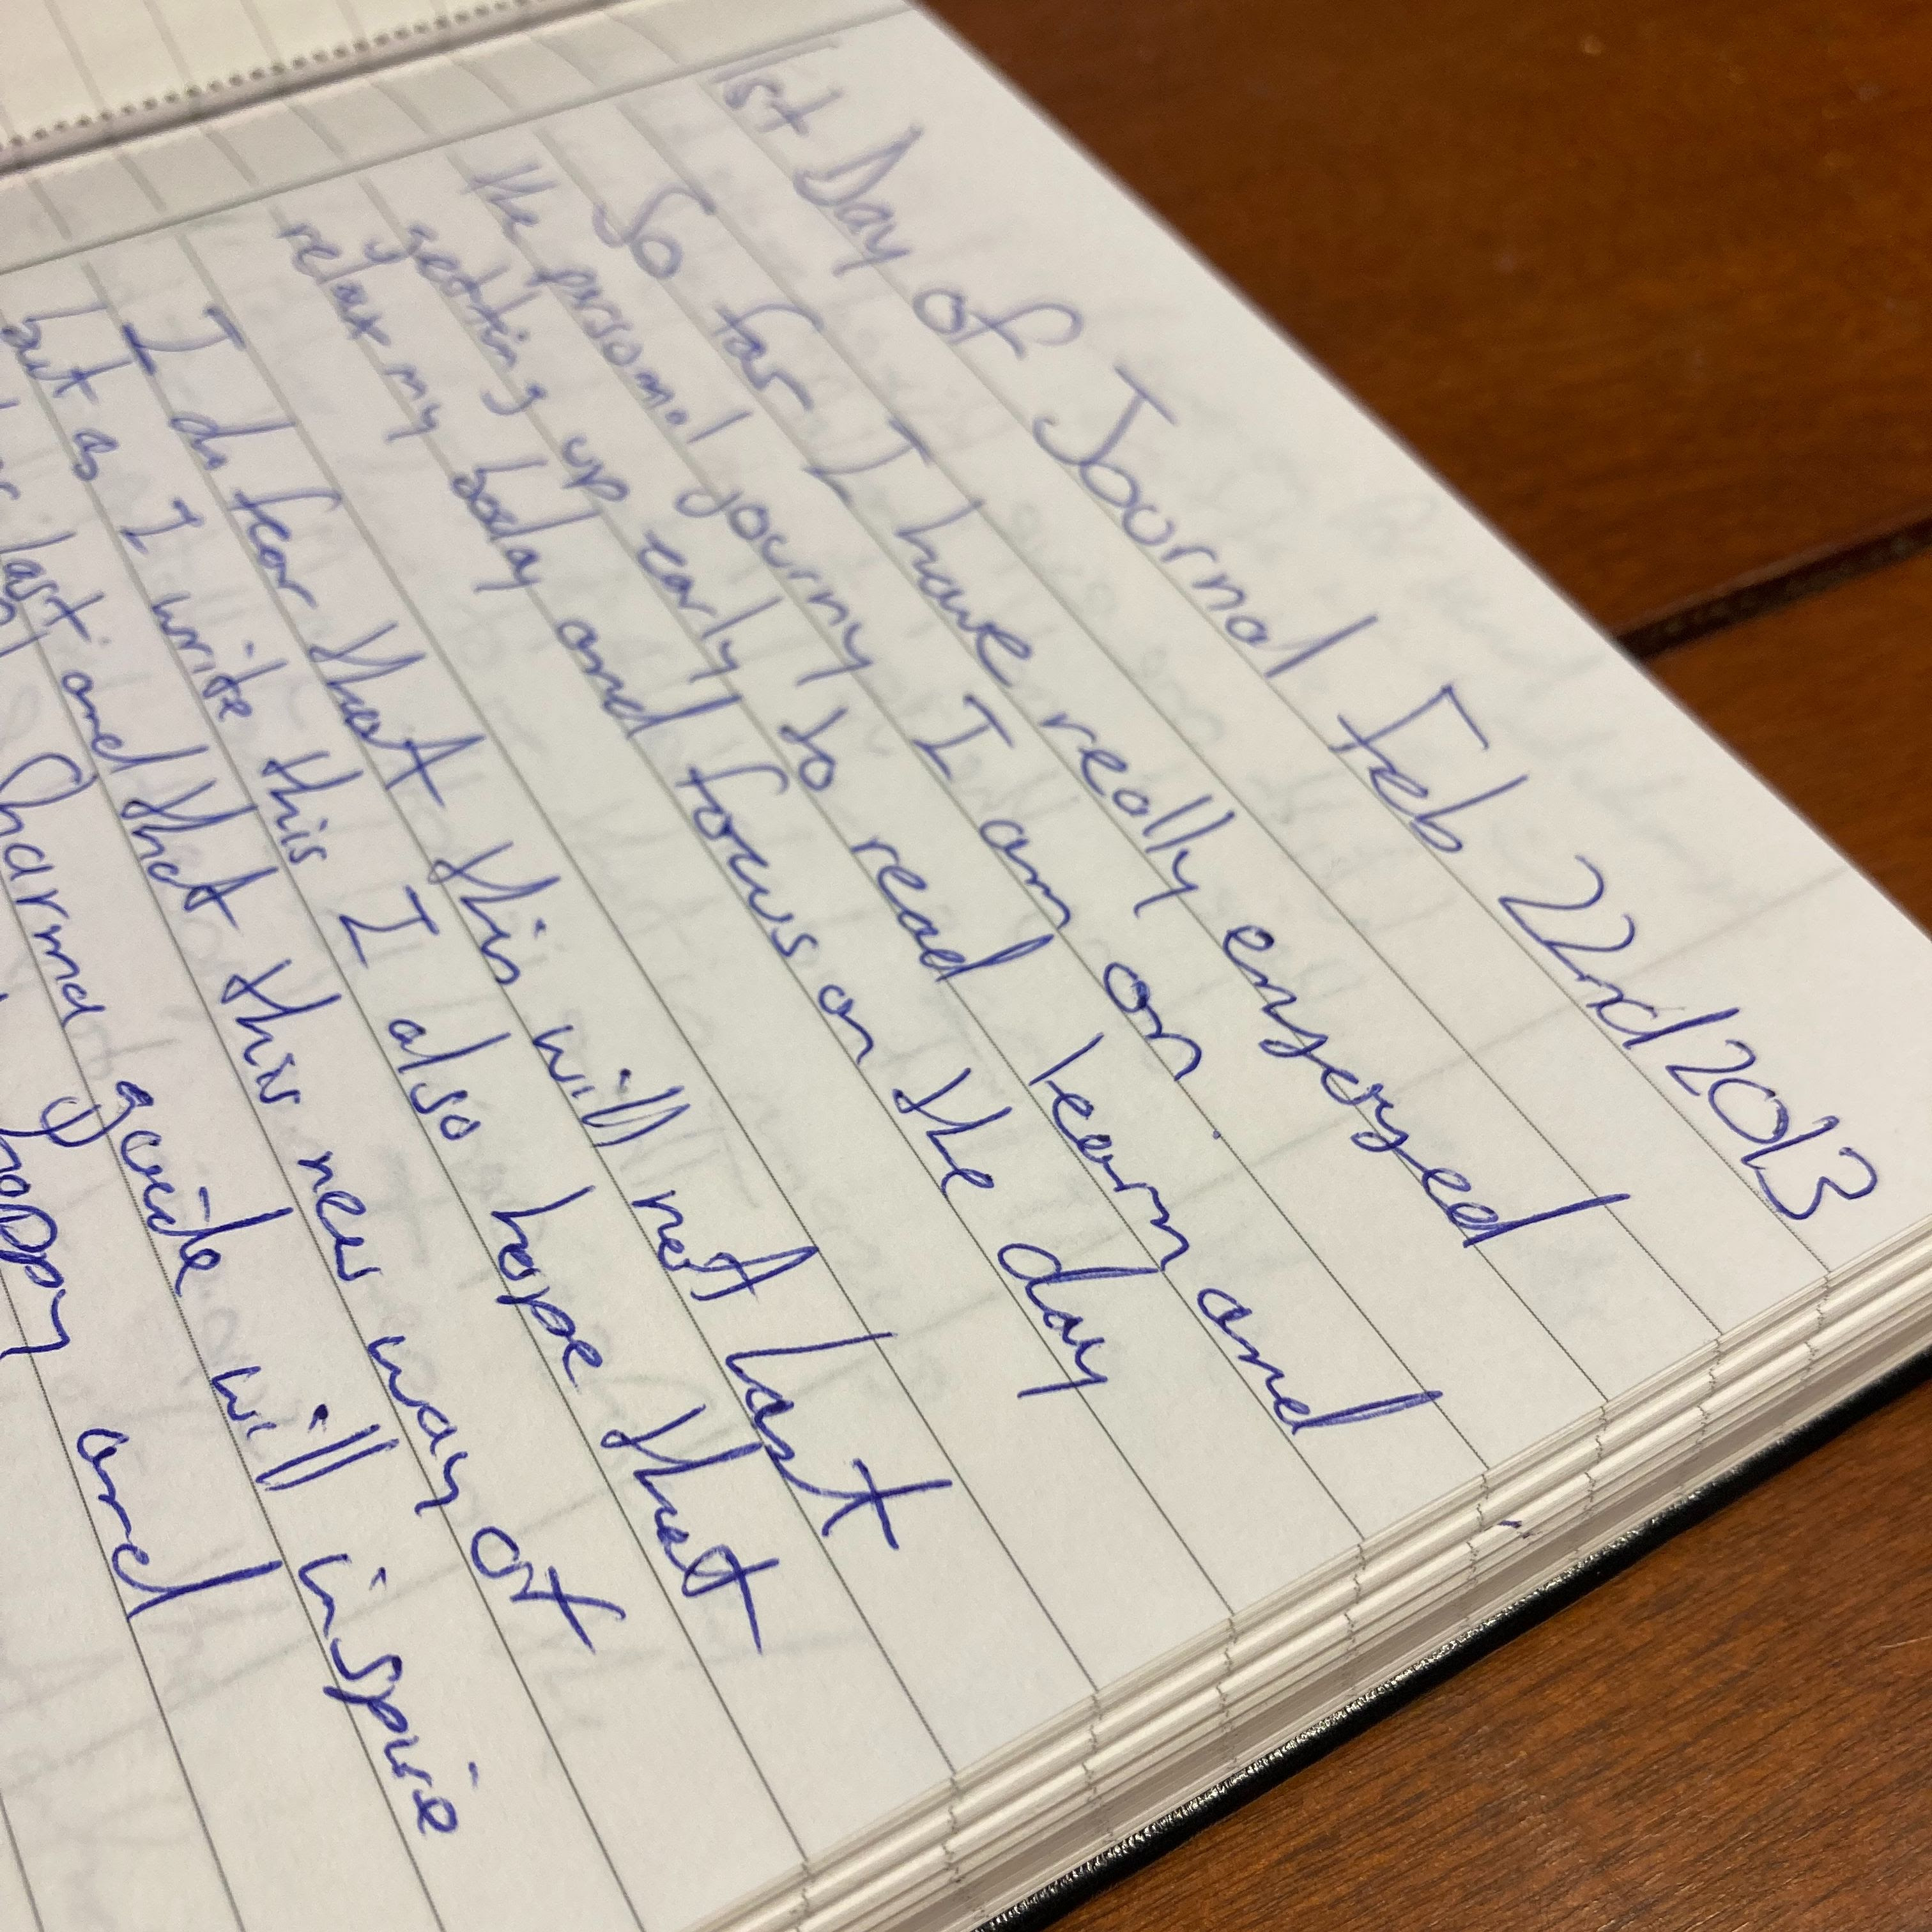 1st Day of Journal Feb 22nd 2013
So far I have really enjoyed
the personal journy I am on.
getting up early to read learn and
relax my body and focus on the day
I do fear that this will not last
but as I write this I also hope that
last and that this new way of
Sharma guide will inspire
happy and